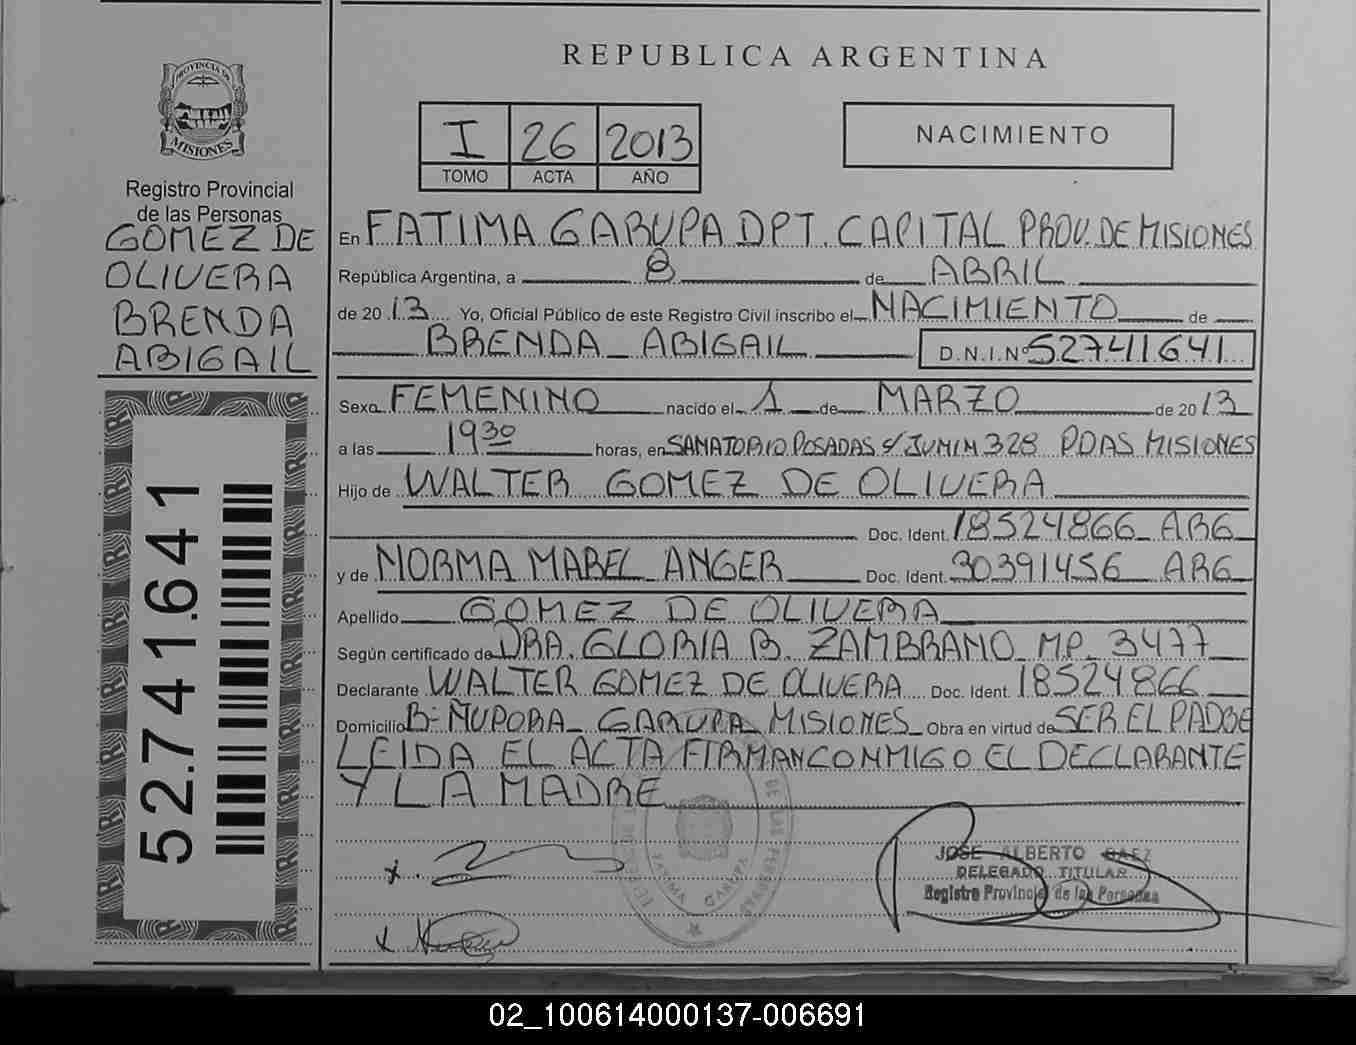 REPUBLICA ARGENTINA
PROVINCIA DE
MISIONES
Registro Provincial
de las Personas
GOMEZ DE
OLIVERA
BRENDA
ABIGAIL
52.741.641
I 26 2013
TOMO ACTA AÑO
NACIMIENTO
En FATIMA GARUPA DPT. CAPITAL PROV. DE MISIONES
República Argentina, a 8 de ABRIL
de 2013 Yo, Oficial Público de este Registro Civil inscribo el NACIMIENTO de
BRENDA ABIGAIL D.N.I.Nº 52741641
Sexo FEMENINO nacido el 1 de MARZO de 2013
a las 19 30 horas, en SANATORIO POSADAS s/ JUNIN 328 PDAS MISIONES
Hijo de WALTER GOMEZ DE OLIVERA
Doc. Ident. 18524866 ARG
y de NORMA MABEL ANGER Doc. Ident. 30391456 ARG
Apellido GOMEZ DE OLIVERA
Según certificado de DRA. GLORIA B. ZAMBRANO MP. 3477
Declarante WALTER GOMEZ DE OLIVERA Doc. Ident. 18524866
Domicilio Bº ÑUPORA GARUPA MISIONES Obra en virtud de SER EL PADRE
LEIDA EL ACTA FIRMAN CONMIGO EL DECLARANTE
Y LA MADRE
JOSE ALBERTO BAEZ
DELEGADO TITULAR
Registro Provincial de las Personas
DE LAS PERSONAS
FATIMA GARUPA
02_100614000137-006691